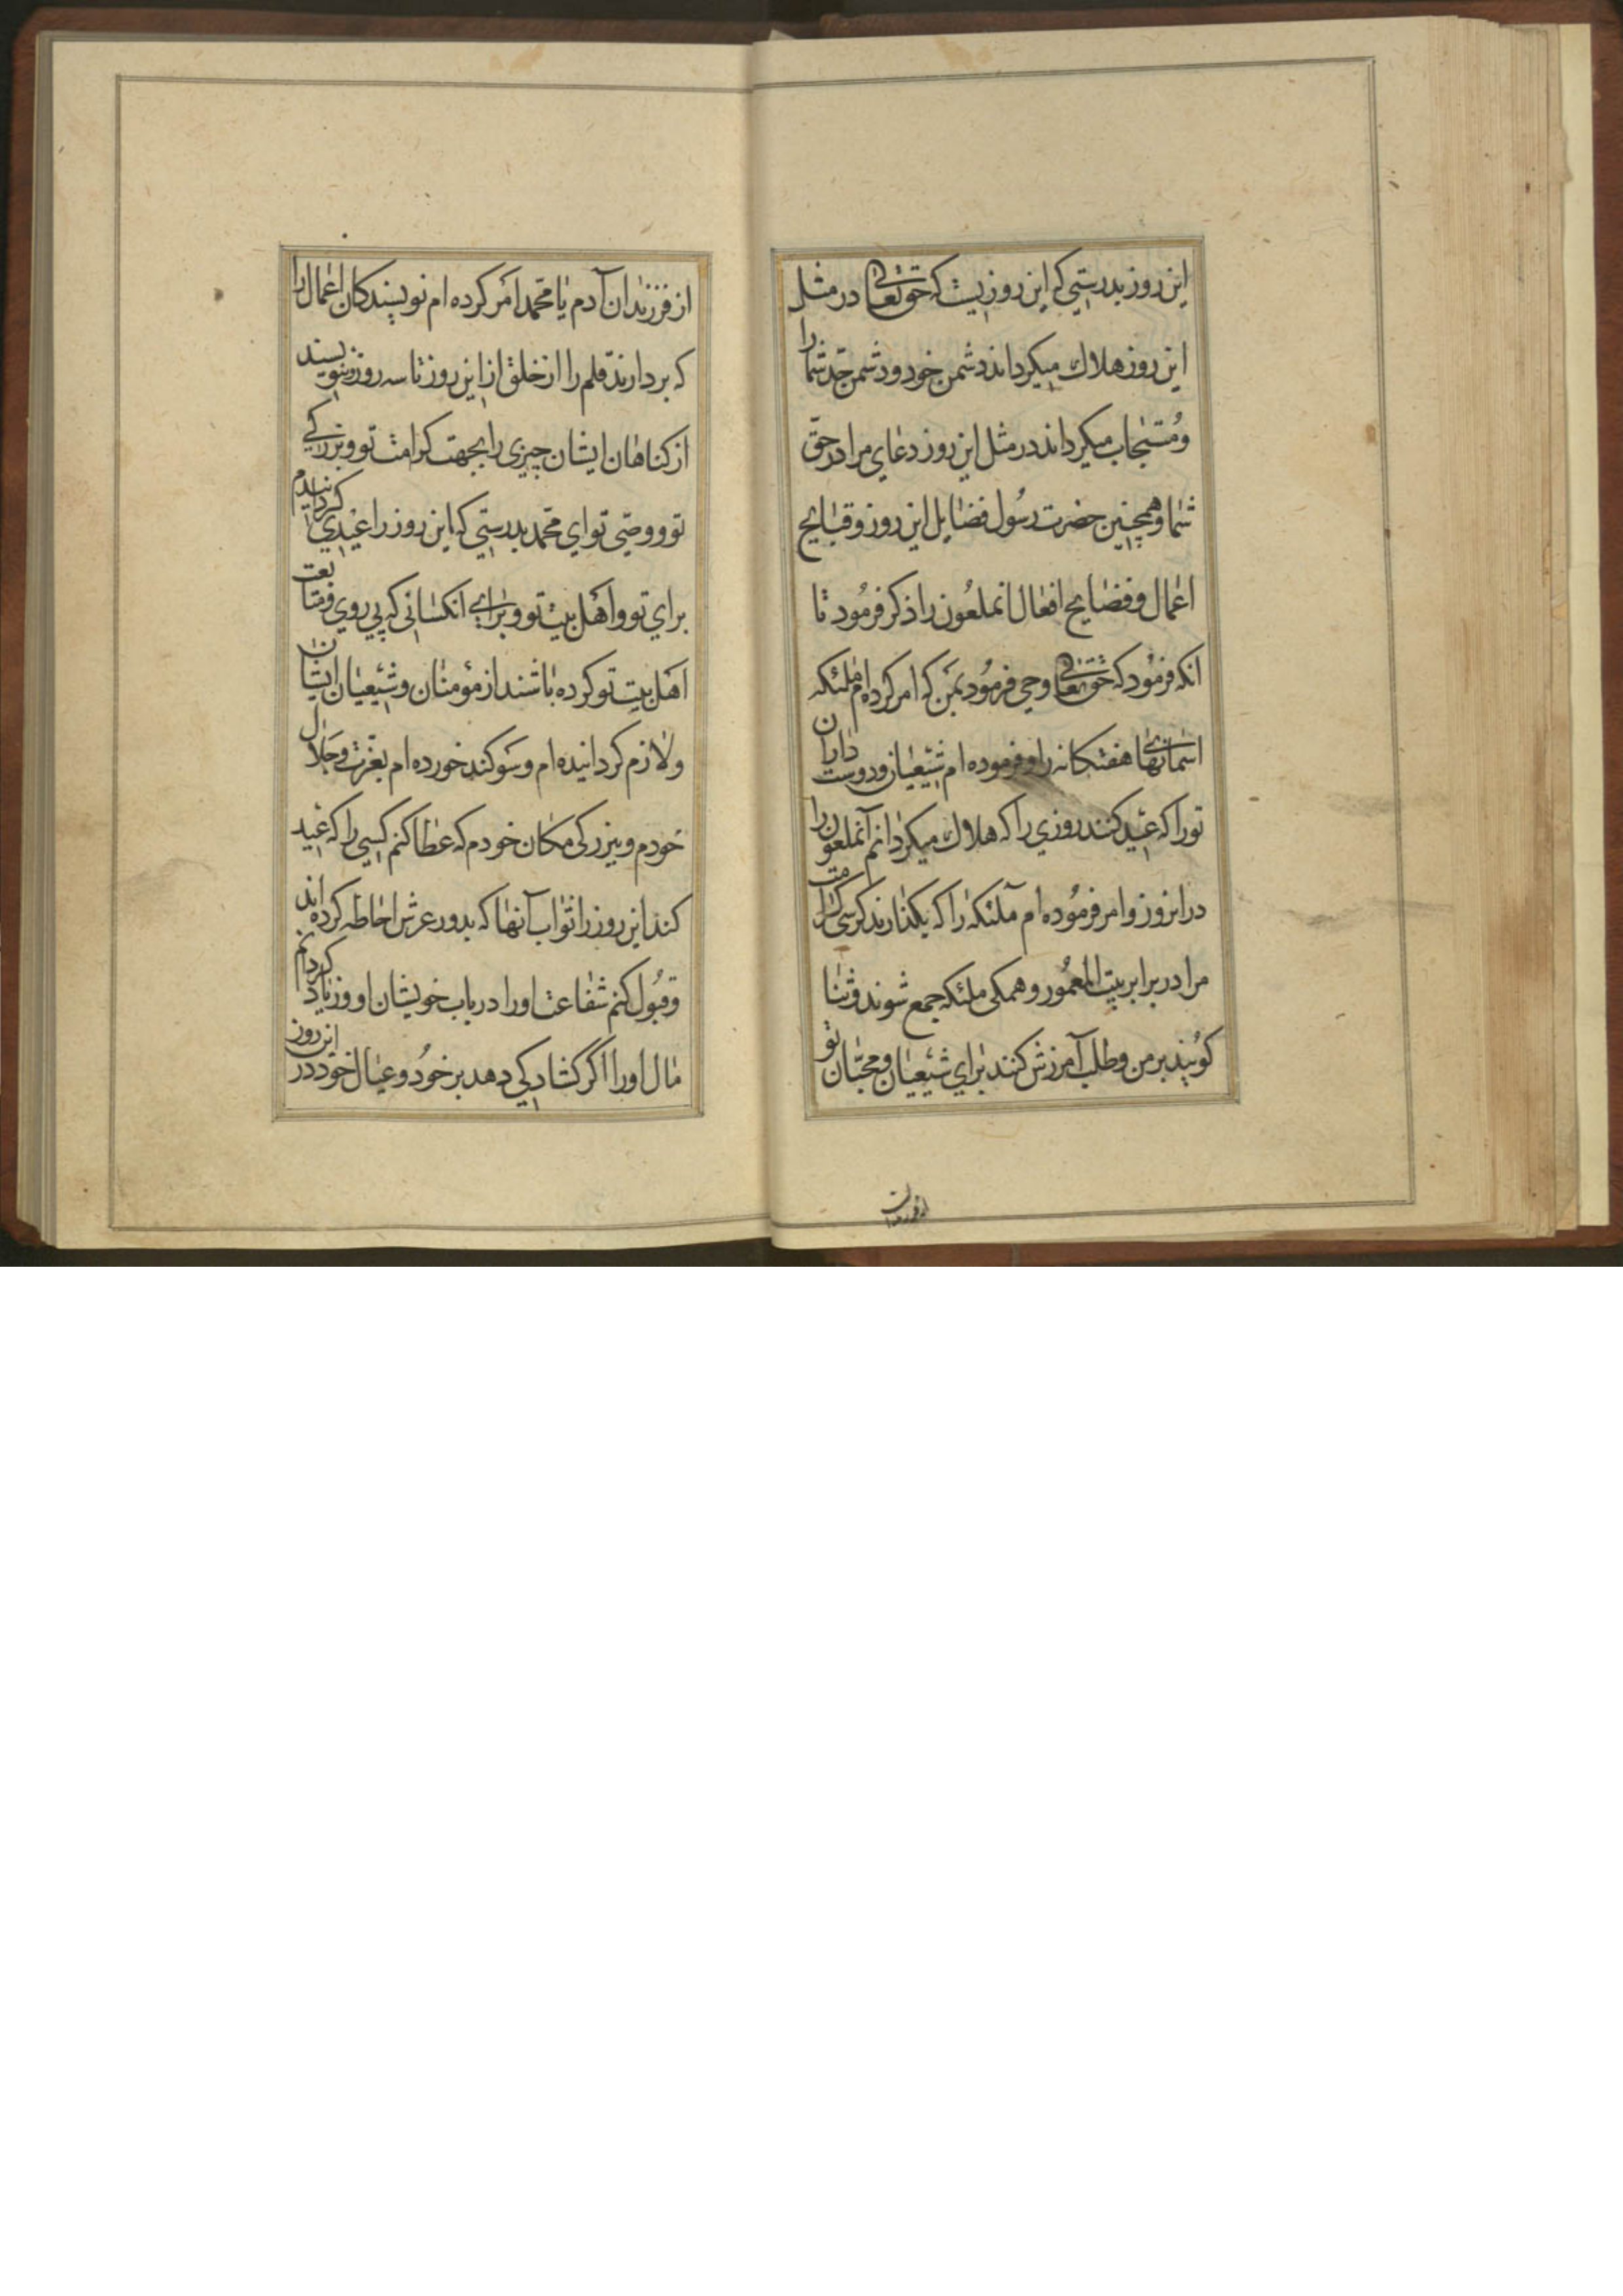 این روز بدرستی که این روزیست که حقتعالی در مثل
این روز هلاك میکرداند دشمن خود و دشمن جدّ شما را
و مُستجاب میکرداند در مثل این روز دعای مرا در حقّ
شما و همچنین حضرت رسُول فضایل این روز و قبایح
اعمال و فضایح افعال انملعُون را ذکر فرمُود تا
انکه فرمُود که حقتعالی وحی فرمُود بمن که امر کرده ام ملئکه
اسمانهای هفتکانه را و فرموده ام شیعیان و دوست داران
تو را که عید کنند روزی را که هلاك میکردانم آنملعون را
در انروز و امر فرمُوده ام ملئکه را که بکذارند کرسی کرامت
مرا در برابر بیت المعمُور و همکی ملئکه جمع شوند و ثنا
کویند بر من و طلب آمرزش کنند برای شیعیان و محبّان تو
از فرزندان
از فرزندان آدم یا محمّد امر کرده ام نویسندکان اعمال را
که بردارند قلم را از خلق از این روز تا سه روز ننویسند
از کناهان ایشان چیزی را بجهت کرامت تو و بزرکی
تو و وصّی تو ای محمّد بدرستی که این روز را عیدی کردانیدم
برای تو و اهل بیت تو و برای انکسانی که پی روی و متابعت
اهل بیت تو کرده باشند از مؤمنان و شیعیان ایشان
و لازم کردانیده ام و سوکند خورده ام بعّزت و جلال
خودم و بزرکی مکان خودم که عطا کنم کسی را که عید
کند این روز را ثواب آنها که بدور عرش احاطه کرده اند
و قبُول کنم شفاعت او را در باب خویشان او و زیاد کردانم
مال او را اکر کشادکی دهد بر خُود و عیال خود در این روز